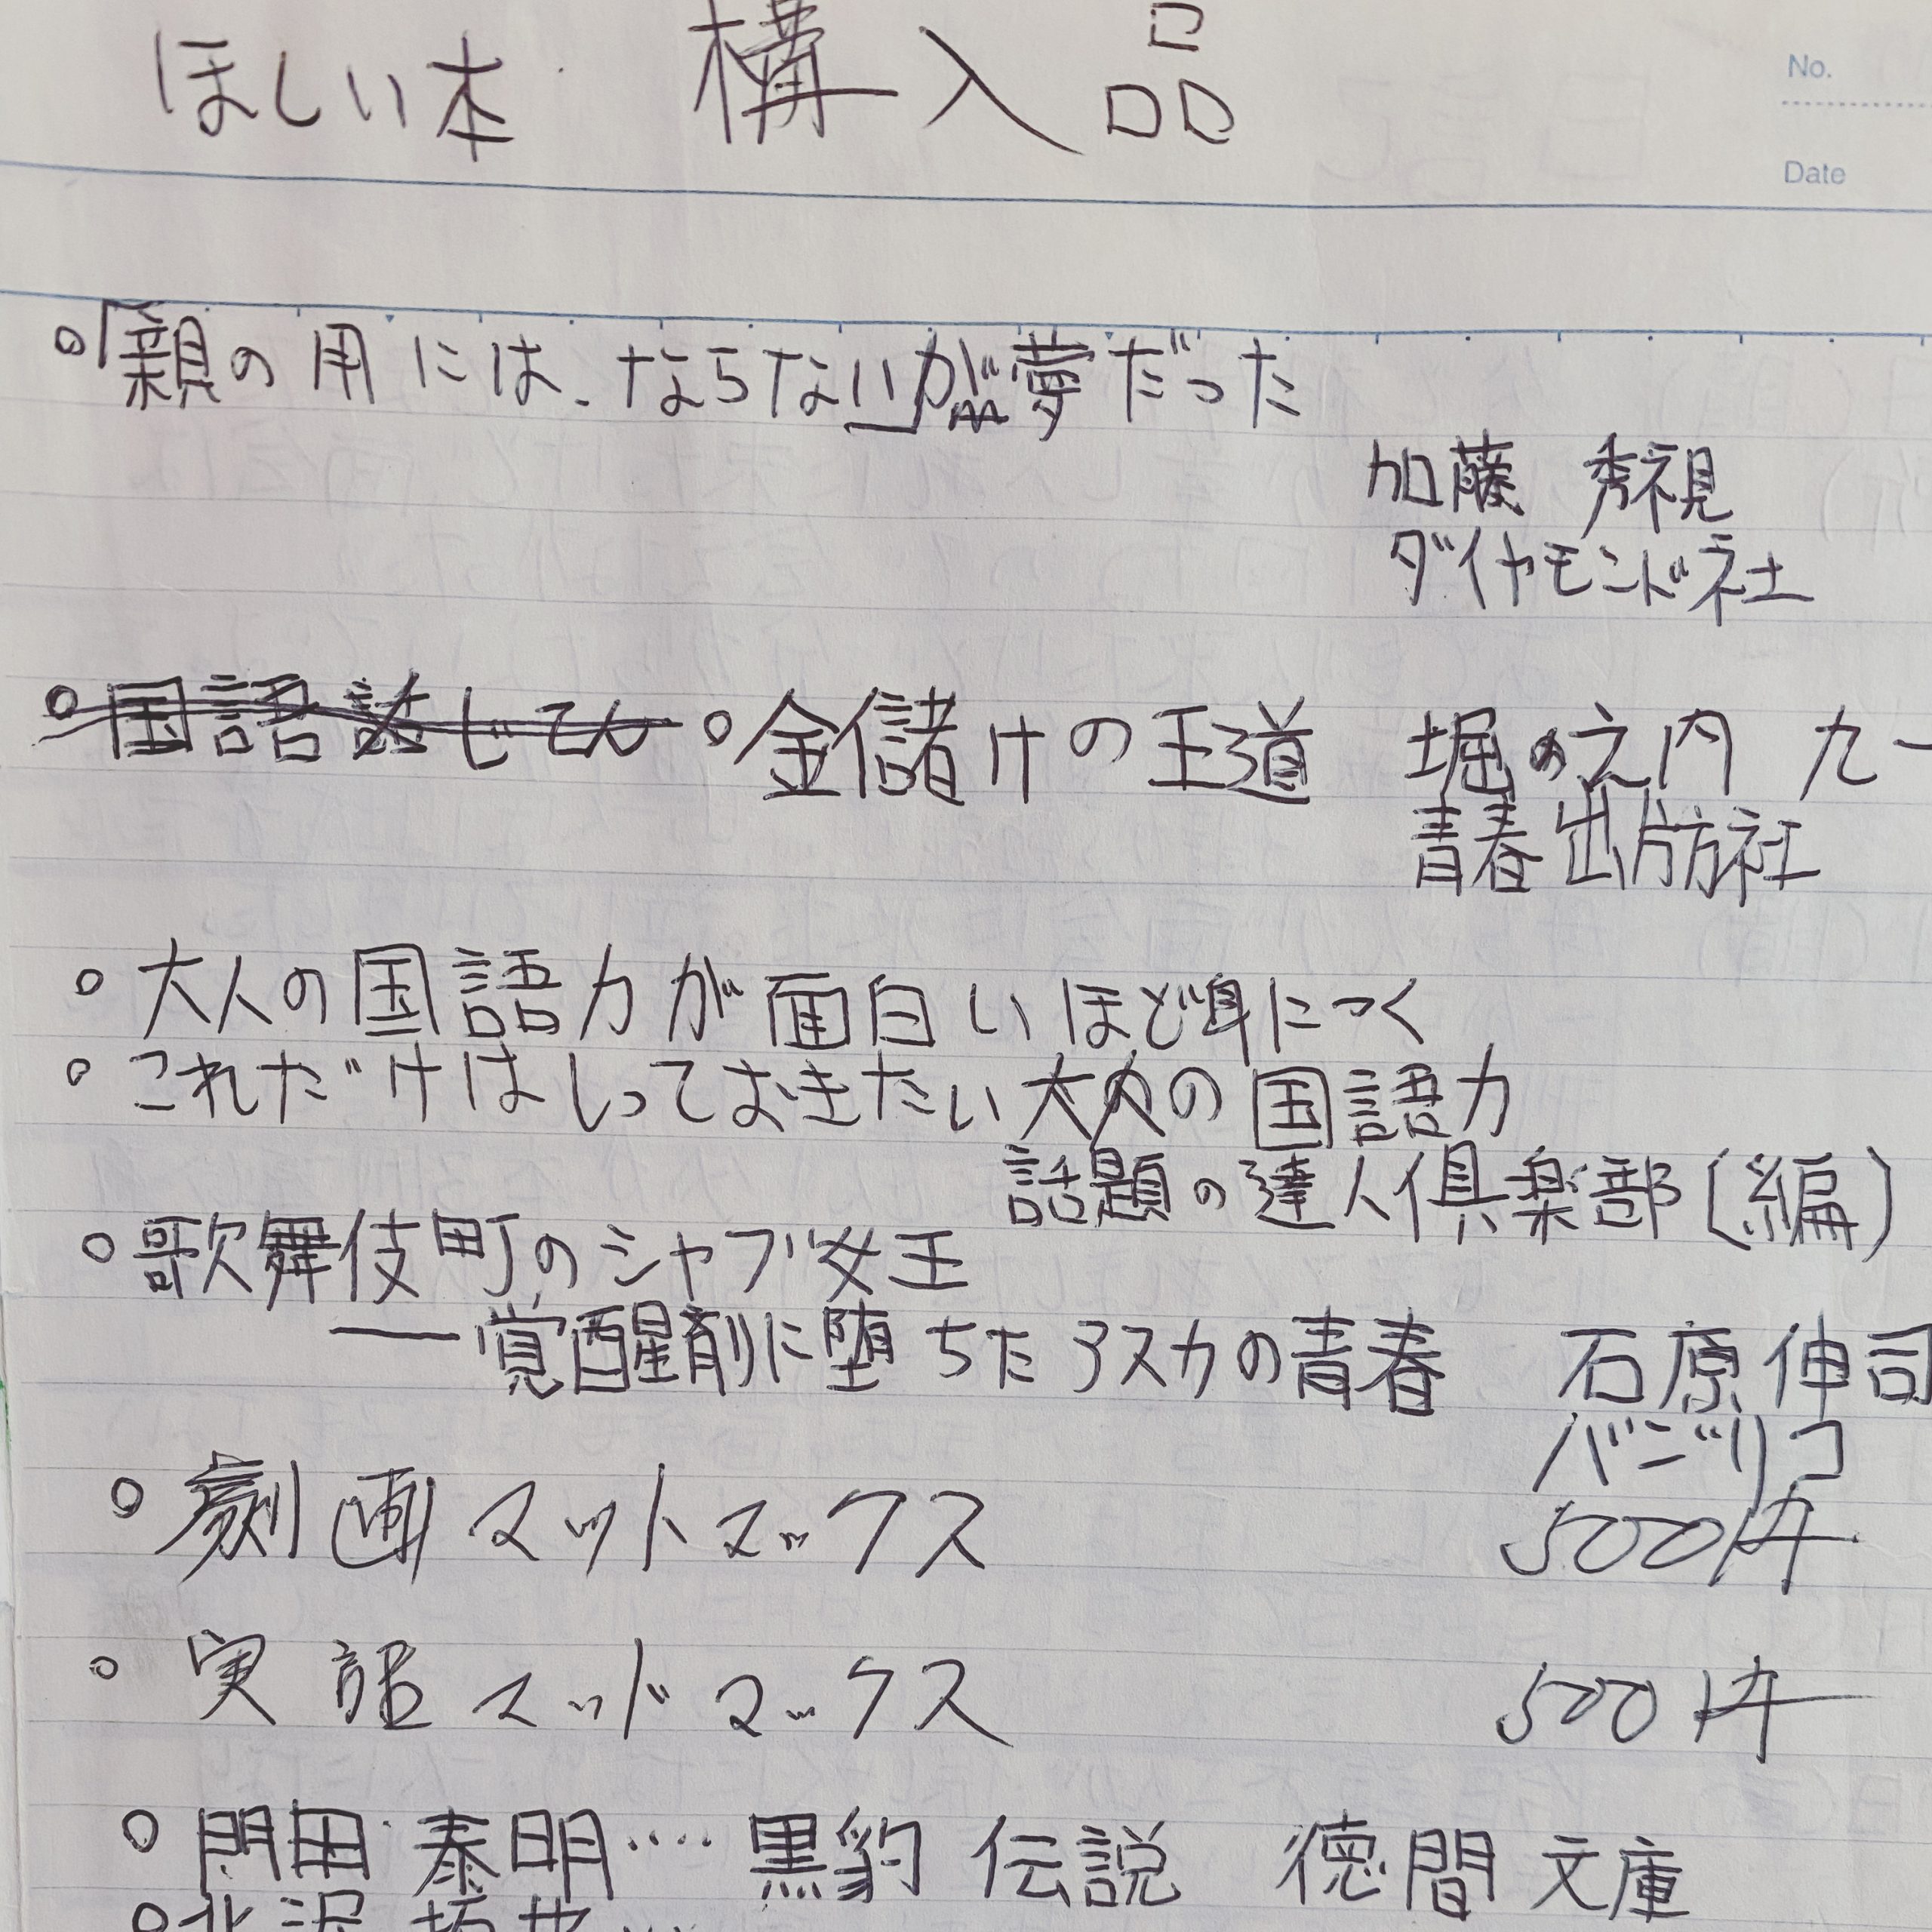 ほしい本 構入品
No.
Date
○「親の用には、ならない」が夢だった
加藤 秀視
ダイヤモンド社
○金儲けの王道 堀の之内 九一
青春出版社
○大人の国語力が面白いほど身につく
○これだけはしっておきたい大人の国語力
話題の達人倶楽部〔編〕
○歌舞伎町のシャブ女王
―覚醒剤に堕ちたアスカの青春 石原伸司
バジリコ
○劇画マットマックス 500円
○実話マッドマックス 500円
○門田泰明…黒豹伝説 徳間文庫
○北沢拓也…